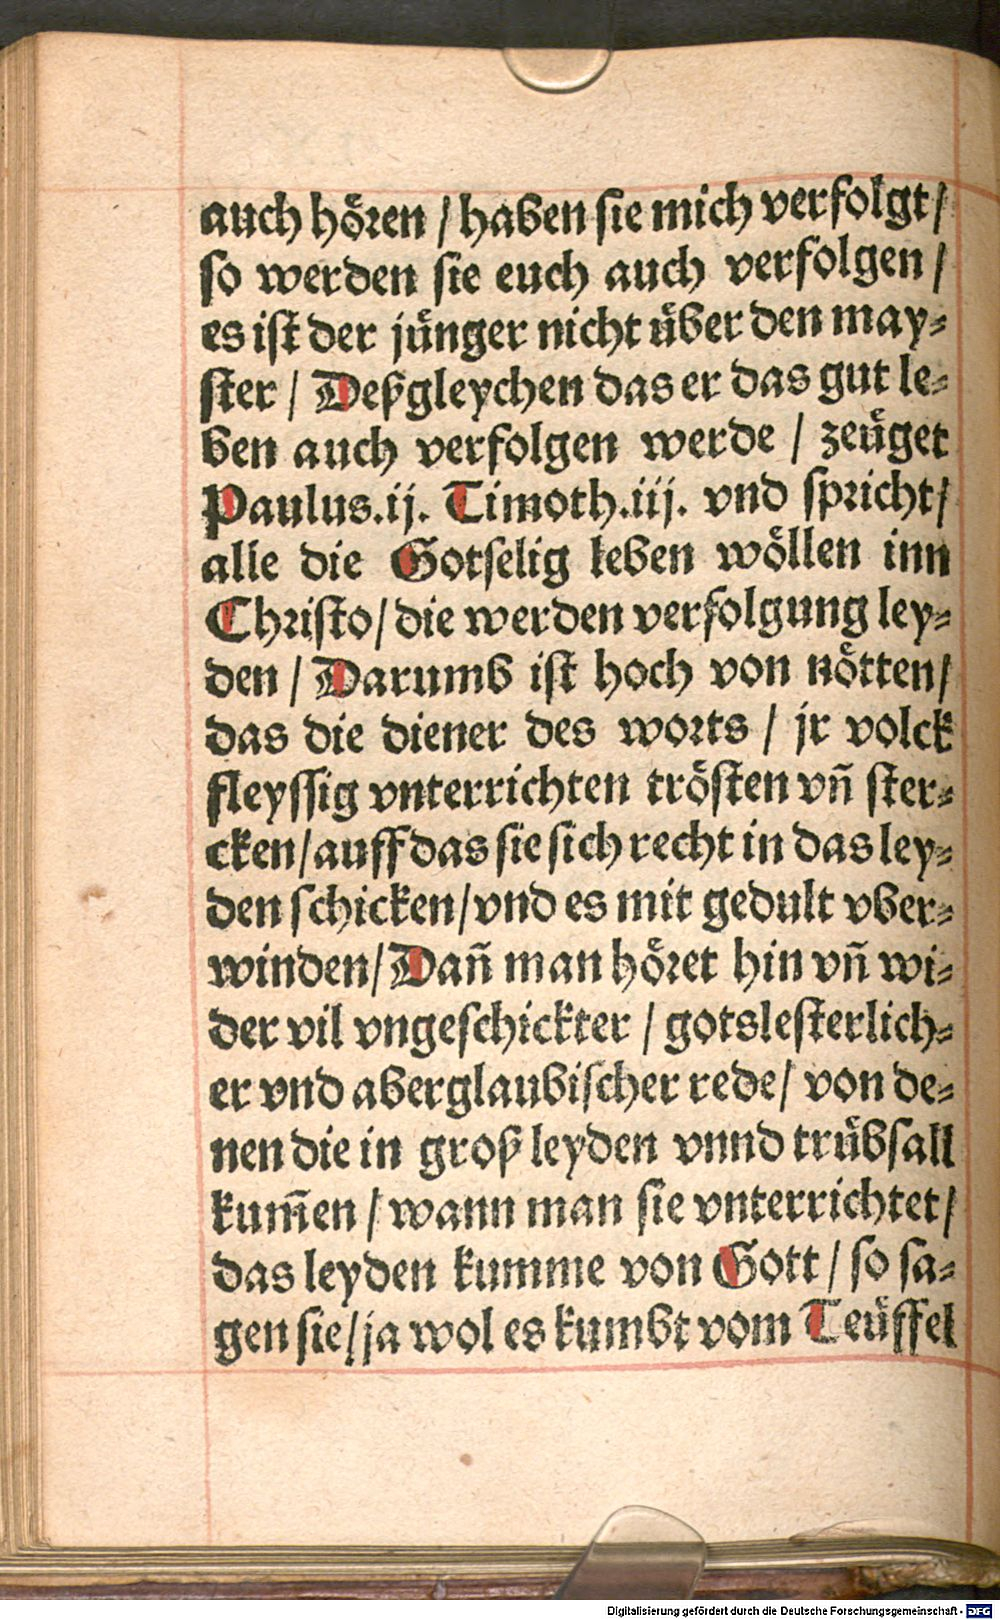 auch hoͤren / haben ſie mich verfolgt /
ſo werden ſie euch auch verfolgen /
es iſt der juͤnger nicht uͤber den may⸗
ſter / Deßgleychen das er das gut le⸗
ben auch verfolgen werde / zeuͤget
Paulus.ij. Timoth.iij. vnd ſpricht /
alle die Gotſelig leben woͤllen inn
Chriſto / die werden verfolgung ley⸗
den / Darumb iſt hoch von noͤtten /
das die diener des worts / jr volck
fleyſſig vnterrichten troͤſten vn̄ ſter⸗
cken / auff das ſie ſich recht in das ley⸗
den ſchicken / vnd es mit gedult vber⸗
winden / Dan̄ man hoͤret hin vn̄ wi⸗
der vil vngeſchickter / gotsleſterlich⸗
er vnd aberglaubiſcher rede / von de⸗
nen die in groß leyden vnnd truͤbſall
kum̄en / wann man ſie vnterrichtet /
das leyden kumme von Gott / ſo ſa⸗
gen ſie / ja wol es kumbt vom Teuͤffel
Digitalisierung gefördert durch die Deutsche Forschungsgemeinschaft - DFG